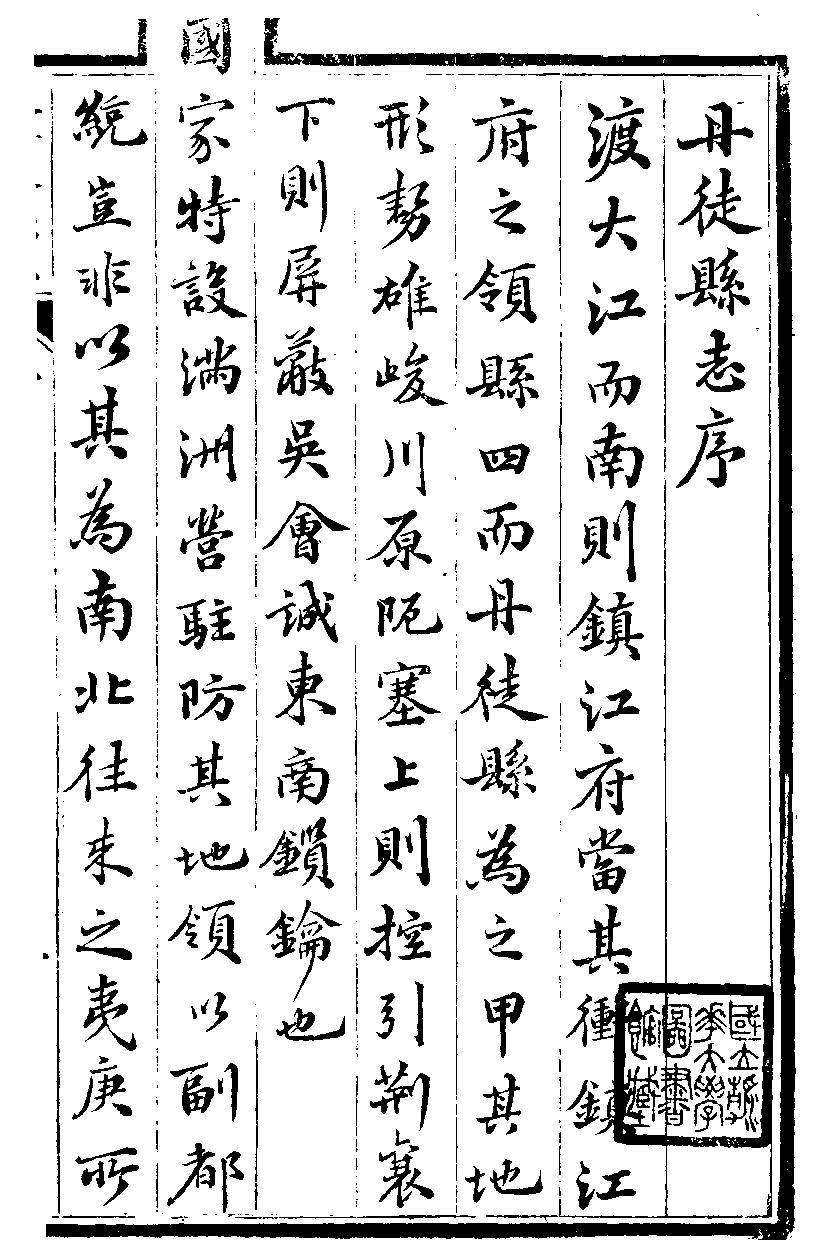 丹徒縣志序
渡大江而南則鎮江府當其衝鎮江
府之領縣四而丹徒縣為之甲其地
形勢雄峻川原阨塞上則控引荆襄
下則屏蔽吳會誠東南鎖鑰也
國家特設滿洲營駐防其地領以副都
統豈非以其為南北往来之夷庚所
國立清
華大學
圖書
館藏